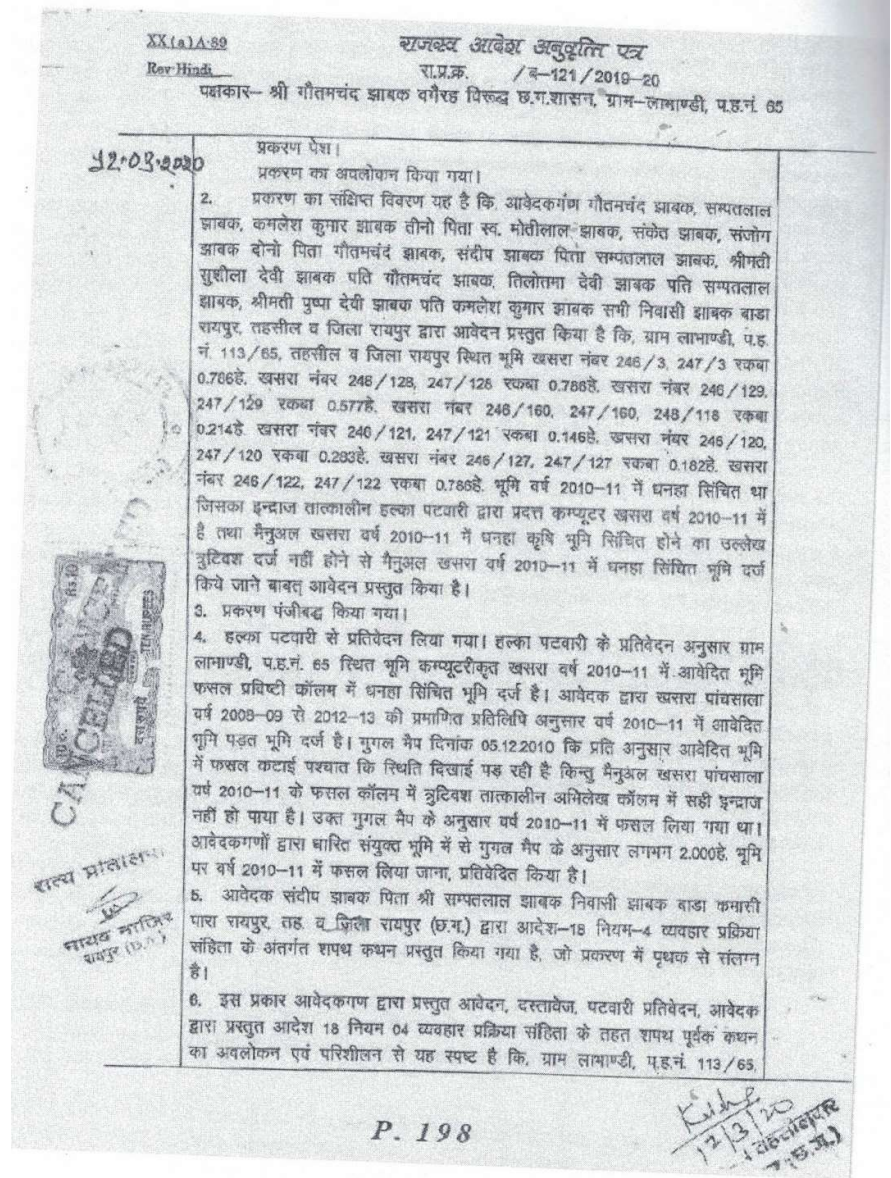 XX(a)A-89
Rev-Hindi
राजस्व आदेश अनुवृत्ति पत्र
रा.प्र.क्र. /ब-121/2019-20
पक्षकार– श्री गौतमचंद झाबक वगैरह विरूद्ध छ.ग.शासन, ग्राम–लाभाण्डी, प.ह.नं. 65
12.03.2020
प्रकरण पेश।
प्रकरण का अवलोकन किया गया।
2. प्रकरण का संक्षिप्त विवरण यह है कि, आवेदकगण गौतमचंद झाबक, सम्पतलाल
झाबक, कमलेश कुमार झाबक तीनो पिता स्व. मोतीलाल झाबक, संकेत झाबक, संजोग
झाबक दोनो पिता गौतमचंद झाबक, संदीप झाबक पिता सम्पतलाल झाबक, श्रीमती
सुशीला देवी झाबक पति गौतमचंद झाबक, तिलोतमा देवी झाबक पति सम्पतलाल
झाबक, श्रीमती पुष्पा देवी झाबक पति कमलेश कुमार झाबक सभी निवासी झाबक बाडा
रायपुर, तहसील व जिला रायपुर द्वारा आवेदन प्रस्तुत किया है कि, ग्राम लाभाण्डी, प.ह.
नं. 113/65, तहसील व जिला रायपुर स्थित भूमि खसरा नंबर 246/3, 247/3 रकबा
0.786हे. खसरा नंबर 246/128, 247/128 रकबा 0.786हे. खसरा नंबर 246/129,
247/129 रकबा 0.577हे. खसरा नंबर 246/160, 247/160, 248/116 रकबा
0.214हे. खसरा नंबर 246/121, 247/121 रकबा 0.146हे. खसरा नंबर 246/120,
247/120 रकबा 0.283हे. खसरा नंबर 246/127, 247/127 रकबा 0.182हे. खसरा
नंबर 246/122, 247/122 रकबा 0.786हे. भूमि वर्ष 2010–11 में धनहा सिंचित था
जिसका इन्द्राज तात्कालीन हल्का पटवारी द्वारा प्रदत्त कम्प्यूटर खसरा वर्ष 2010–11 में
है तथा मैनुअल खसरा वर्ष 2010–11 में धनहा कृषि भूमि सिंचित होने का उल्लेख
त्रुटिवश दर्ज नहीं होने से मैनुअल खसरा वर्ष 2010–11 में धनहा सिंचित भूमि दर्ज
किये जाने बाबत् आवेदन प्रस्तुत किया है।
3. प्रकरण पंजीबद्ध किया गया।
4. हल्का पटवारी से प्रतिवेदन लिया गया। हल्का पटवारी के प्रतिवेदन अनुसार ग्राम
लाभाण्डी, प.ह.नं. 65 स्थित भूमि कम्प्यूटरीकृत खसरा वर्ष 2010–11 में आवेदित भूमि
फसल प्रविष्टी कॉलम में धनहा सिंचित भूमि दर्ज है। आवेदक द्वारा खसरा पांचसाला
वर्ष 2008–09 से 2012–13 की प्रमाणित प्रतिलिपि अनुसार वर्ष 2010–11 में आवेदित
भूमि पड़त भूमि दर्ज है। गुगल मैप दिनांक 05.12.2010 कि प्रति अनुसार आवेदित भूमि
में फसल कटाई पश्चात कि स्थिति दिखाई पड़ रही है किन्तु मैनुअल खसरा पांचसाला
वर्ष 2010–11 के फसल कॉलम में त्रुटिवश तात्कालीन अभिलेख कॉलम में सही इन्द्राज
नहीं हो पाया है। उक्त गुगल मैप के अनुसार वर्ष 2010–11 में फसल लिया गया था।
आवेदकगणों द्वारा धारित संयुक्त भूमि में से गुगल मैप के अनुसार लगभग 2.000हे. भूमि
पर वर्ष 2010–11 में फसल लिया जाना, प्रतिवेदित किया है।
5. आवेदक संदीप झाबक पिता श्री सम्पतलाल झाबक निवासी झाबक बाडा कमासी
पारा रायपुर, तह. व जिला रायपुर (छ.ग.) द्वारा आदेश–18 नियम–4 व्यवहार प्रक्रिया
संहिता के अंतर्गत शपथ कथन प्रस्तुत किया गया है, जो प्रकरण में पृथक से संलग्न
है।
6. इस प्रकार आवेदकगण द्वारा प्रस्तुत आवेदन, दस्तावेज, पटवारी प्रतिवेदन, आवेदक
द्वारा प्रस्तुत आदेश 18 नियम 04 व्यवहार प्रक्रिया संहिता के तहत शपथ पूर्वक कथन
का अवलोकन एवं परिशीलन से यह स्पष्ट है कि, ग्राम लाभाण्डी, प.ह.नं. 113/65,
Rs.10
TEN RUPEES
CANCELLED
सत्य प्रतिलिपि
नायब नाजिर
रायपुर (छ.ग.)
12/3/20
तहसीलदार
(छ.ग.)
P. 198